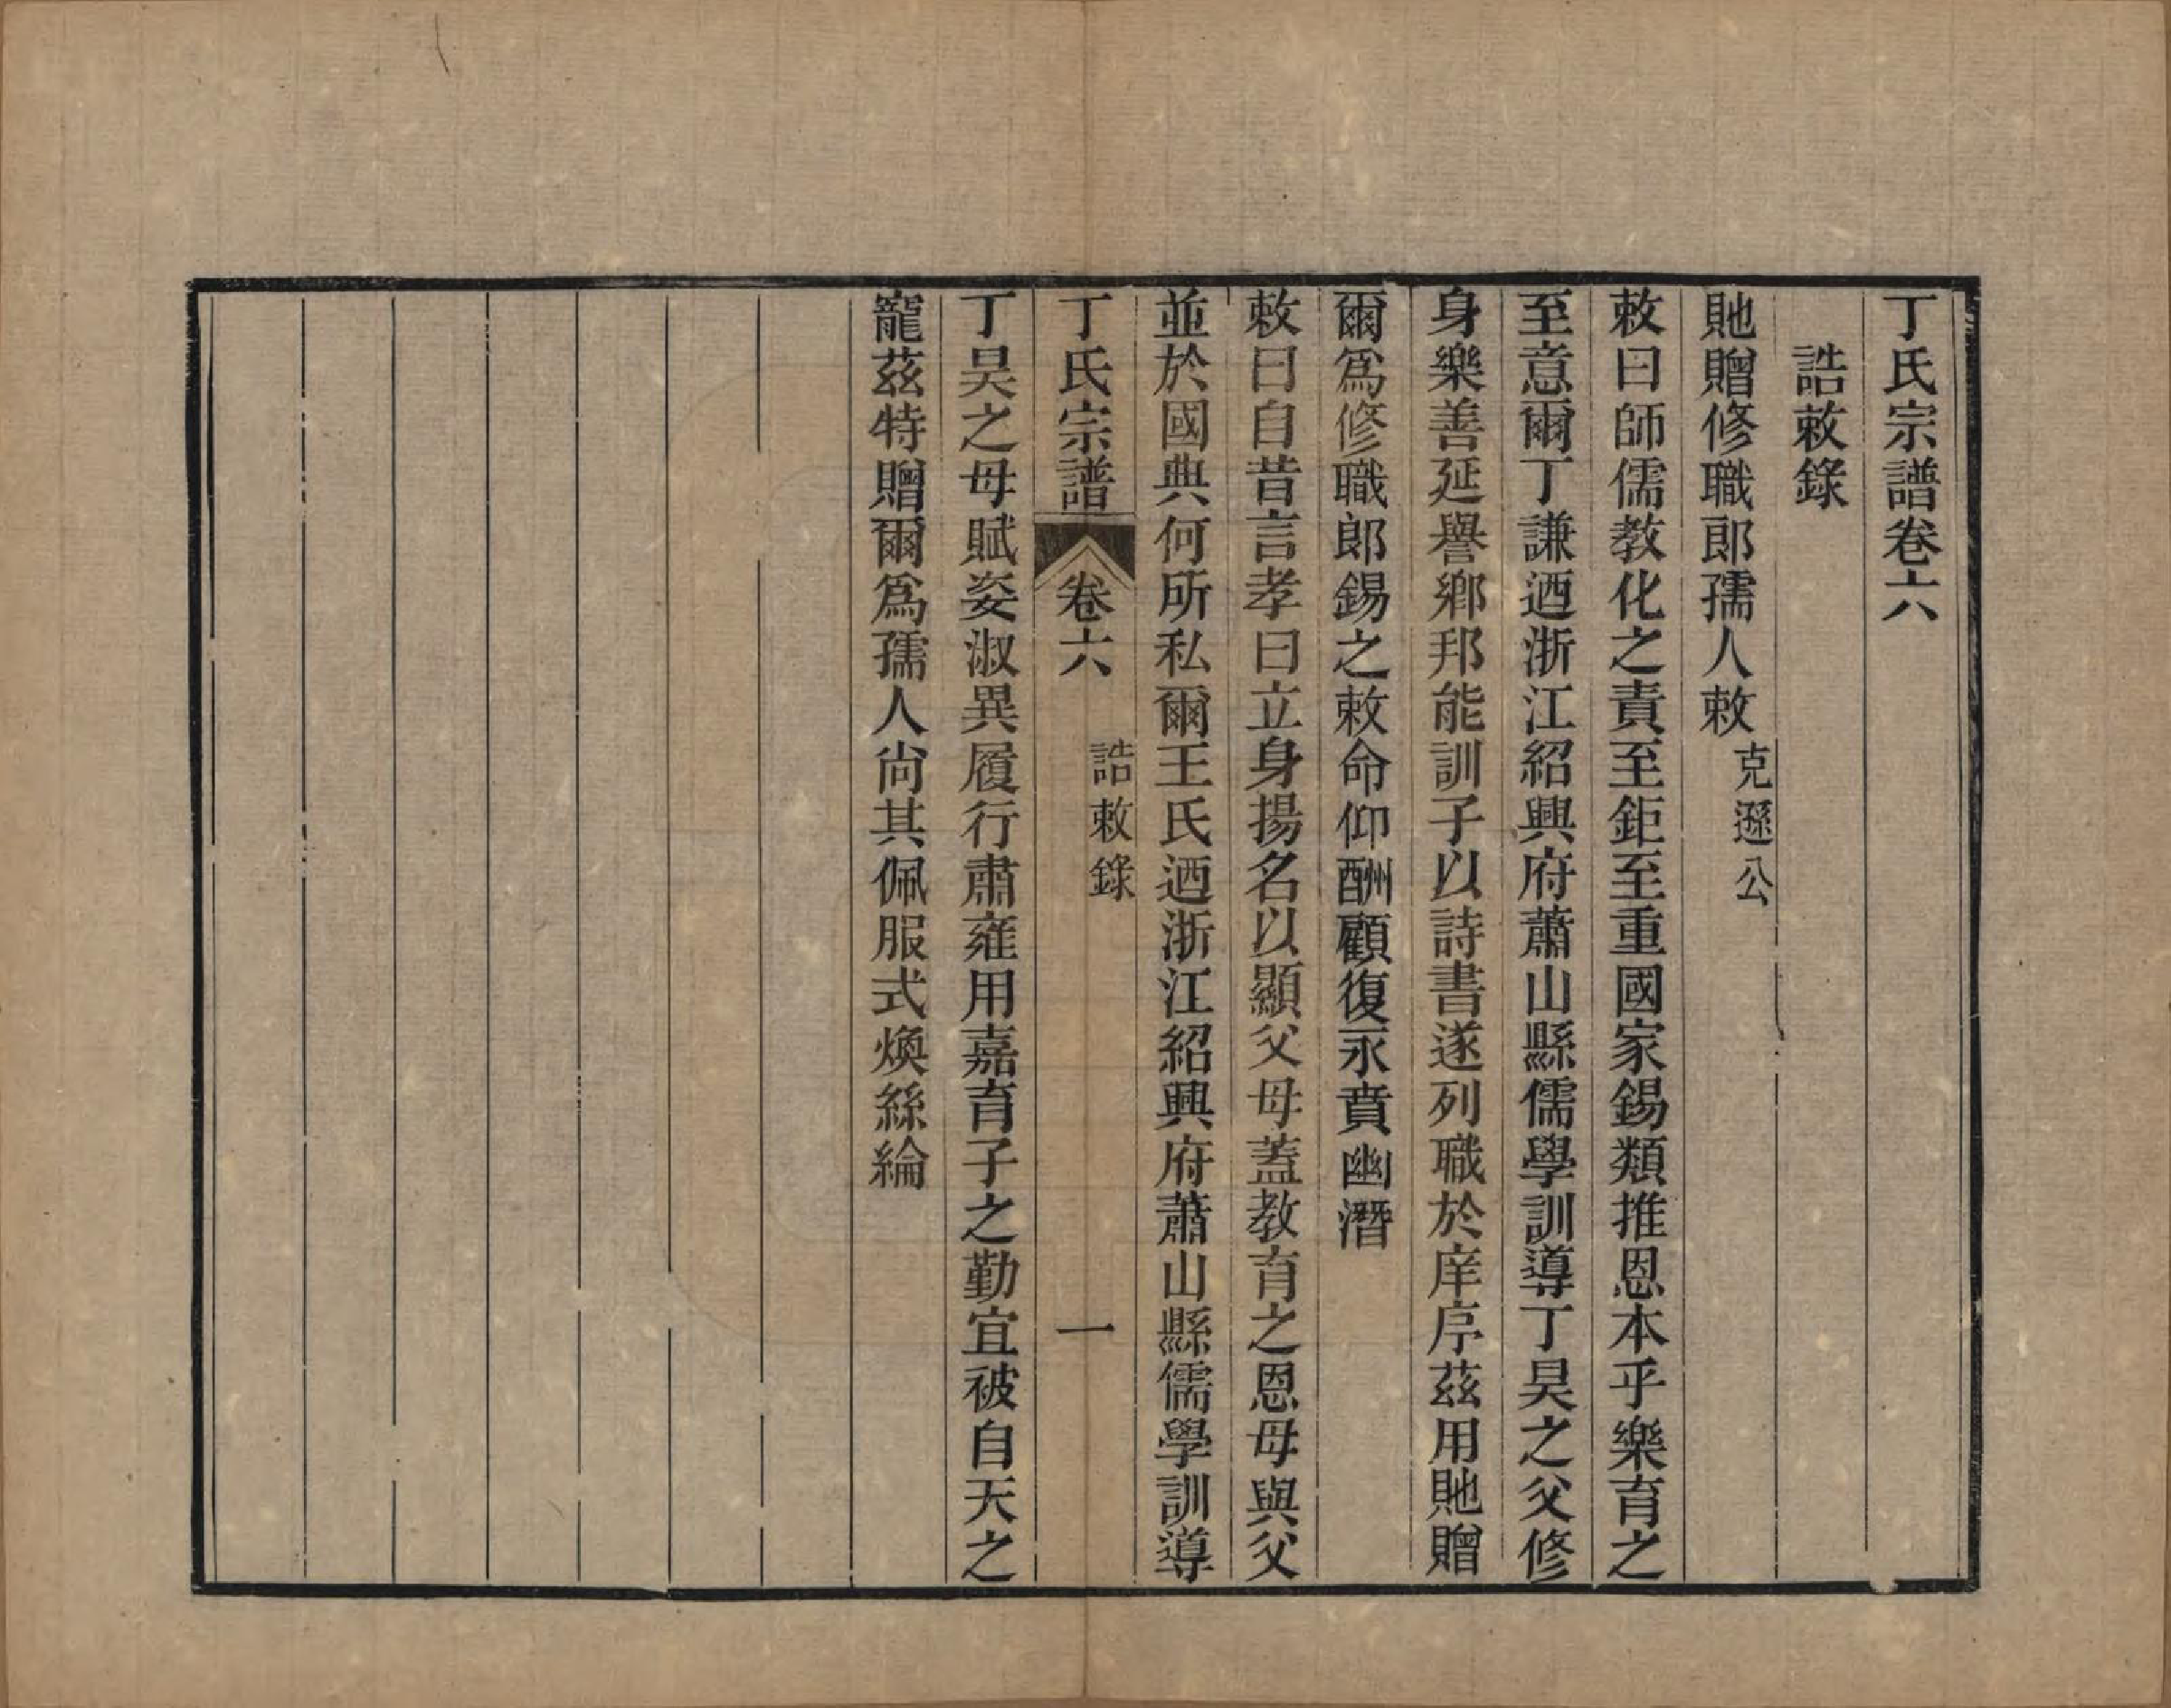 丁氏宗譜卷六
誥敕錄
貤贈修職郎孺人敕 克遜公
敕曰師儒教化之責至鉅至重國家錫類推恩本乎樂育之
至意爾丁謙迺浙江紹興府蕭山縣儒學訓導丁昊之父修
身樂善延譽鄉邦能訓子以詩書遂列職於庠序茲用貤贈
爾爲修職郎錫之敕命仰酬顧復永賁幽潛
敕曰自昔言孝曰立身揚名以顯父母蓋教育之恩母與父
並於國典何所私爾王氏迺浙江紹興府蕭山縣儒學訓導
丁氏宗譜 卷六 誥敕錄 一
丁昊之母賦姿淑異履行肅雍用嘉育子之勤宜被自天之
寵茲特贈爾爲孺人尚其佩服式煥絲綸